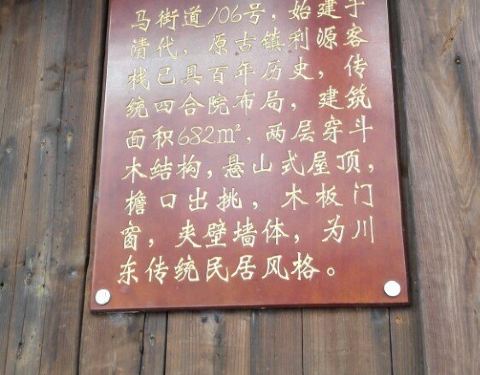 马街道106号，始建于
清代，原古镇利源客
栈已具百年历史，传
统四合院布局，建筑
面积682m²，两层穿斗
木结构，悬山式屋顶，
檐口出挑，木板门
窗，夹壁墙体，为川
东传统民居风格。